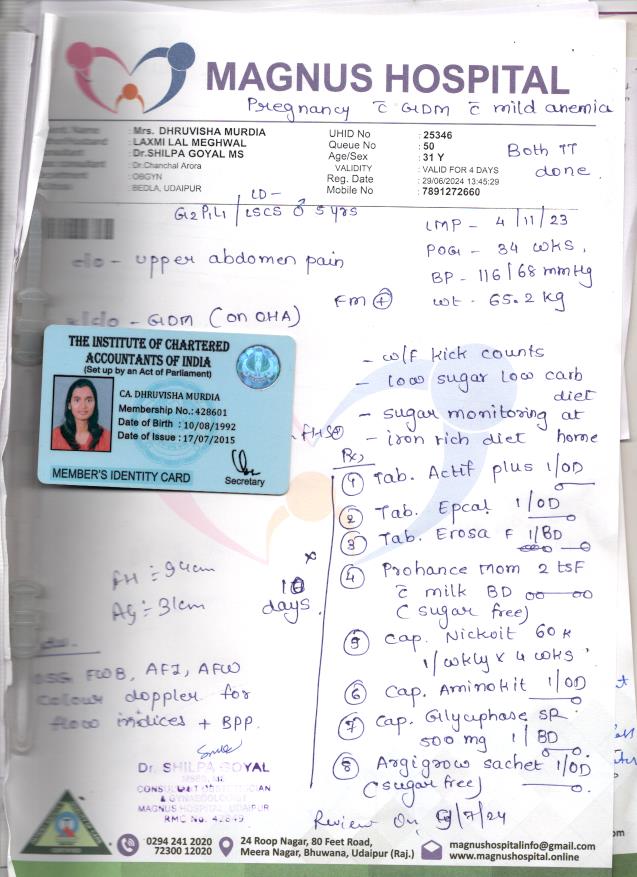 MAGNUS HOSPITAL
Pregnancy c̄ GDM c̄ mild anemia
Mrs. DHRUVISHA MURDIA
LAXMI LAL MEGHWAL
Dr.SHILPA GOYAL MS
Dr.Chanchal Arora
OBGYN
BEDLA, UDAIPUR
UHID No : 25346
Queue No : 50
Age/Sex : 31 Y
VALIDITY : VALID FOR 4 DAYS
Reg. Date : 29/06/2024 13:45:29
Mobile No : 7891272660
Both TT
done.
LD -
G2P1L1 / LSCS ♂ 5 yrs
LMP - 4/11/23
POG - 34 wks.
BP - 116/68 mmHg
FM (+) wt - 65.2 kg
c/o - upper abdomen pain
GDM (on OHA)
THE INSTITUTE OF CHARTERED
ACCOUNTANTS OF INDIA
(Set up by an Act of Parliament)
CA. DHRUVISHA MURDIA
Membership No.: 428601
Date of Birth : 10/08/1992
Date of Issue : 17/07/2015
Secretary
MEMBER'S IDENTITY CARD
- w/f kick counts
- low sugar low carb
diet
- sugar monitoring at
home
- iron rich diet
FHS (+)
Rx,
① Tab. Actif plus 1/OD
② Tab. Epcal 1/OD
③ Tab. Erosa F 1/BD
④ Prohance mom 2 tsF
c̄ milk BD
(sugar free)
⑤ Cap. 60K
1/wkly x 4 wks
⑥ Cap. Aminokit 1/OD
⑦ Cap. Glyciphase SR
500 mg 1/BD
⑧ Argigrow sachet 1/OD
(sugar free)
x
10
days.
= 94cm
AG = 31cm
USG FWB, AFI, AFW
colour doppler for
flow indices + BPP.
Dr. SHILPA GOYAL
MBBS, MS
CONSULTANT OBSTETRICIAN
& GYNAECOLOGIST
MAGNUS HOSPITAL, UDAIPUR
RMC No. 42849
Review on 9/7/24
0294 241 2020
72300 12020
24 Roop Nagar, 80 Feet Road,
Meera Nagar, Bhuwana, Udaipur (Raj.)
magnushospitalinfo@gmail.com
www.magnushospital.online